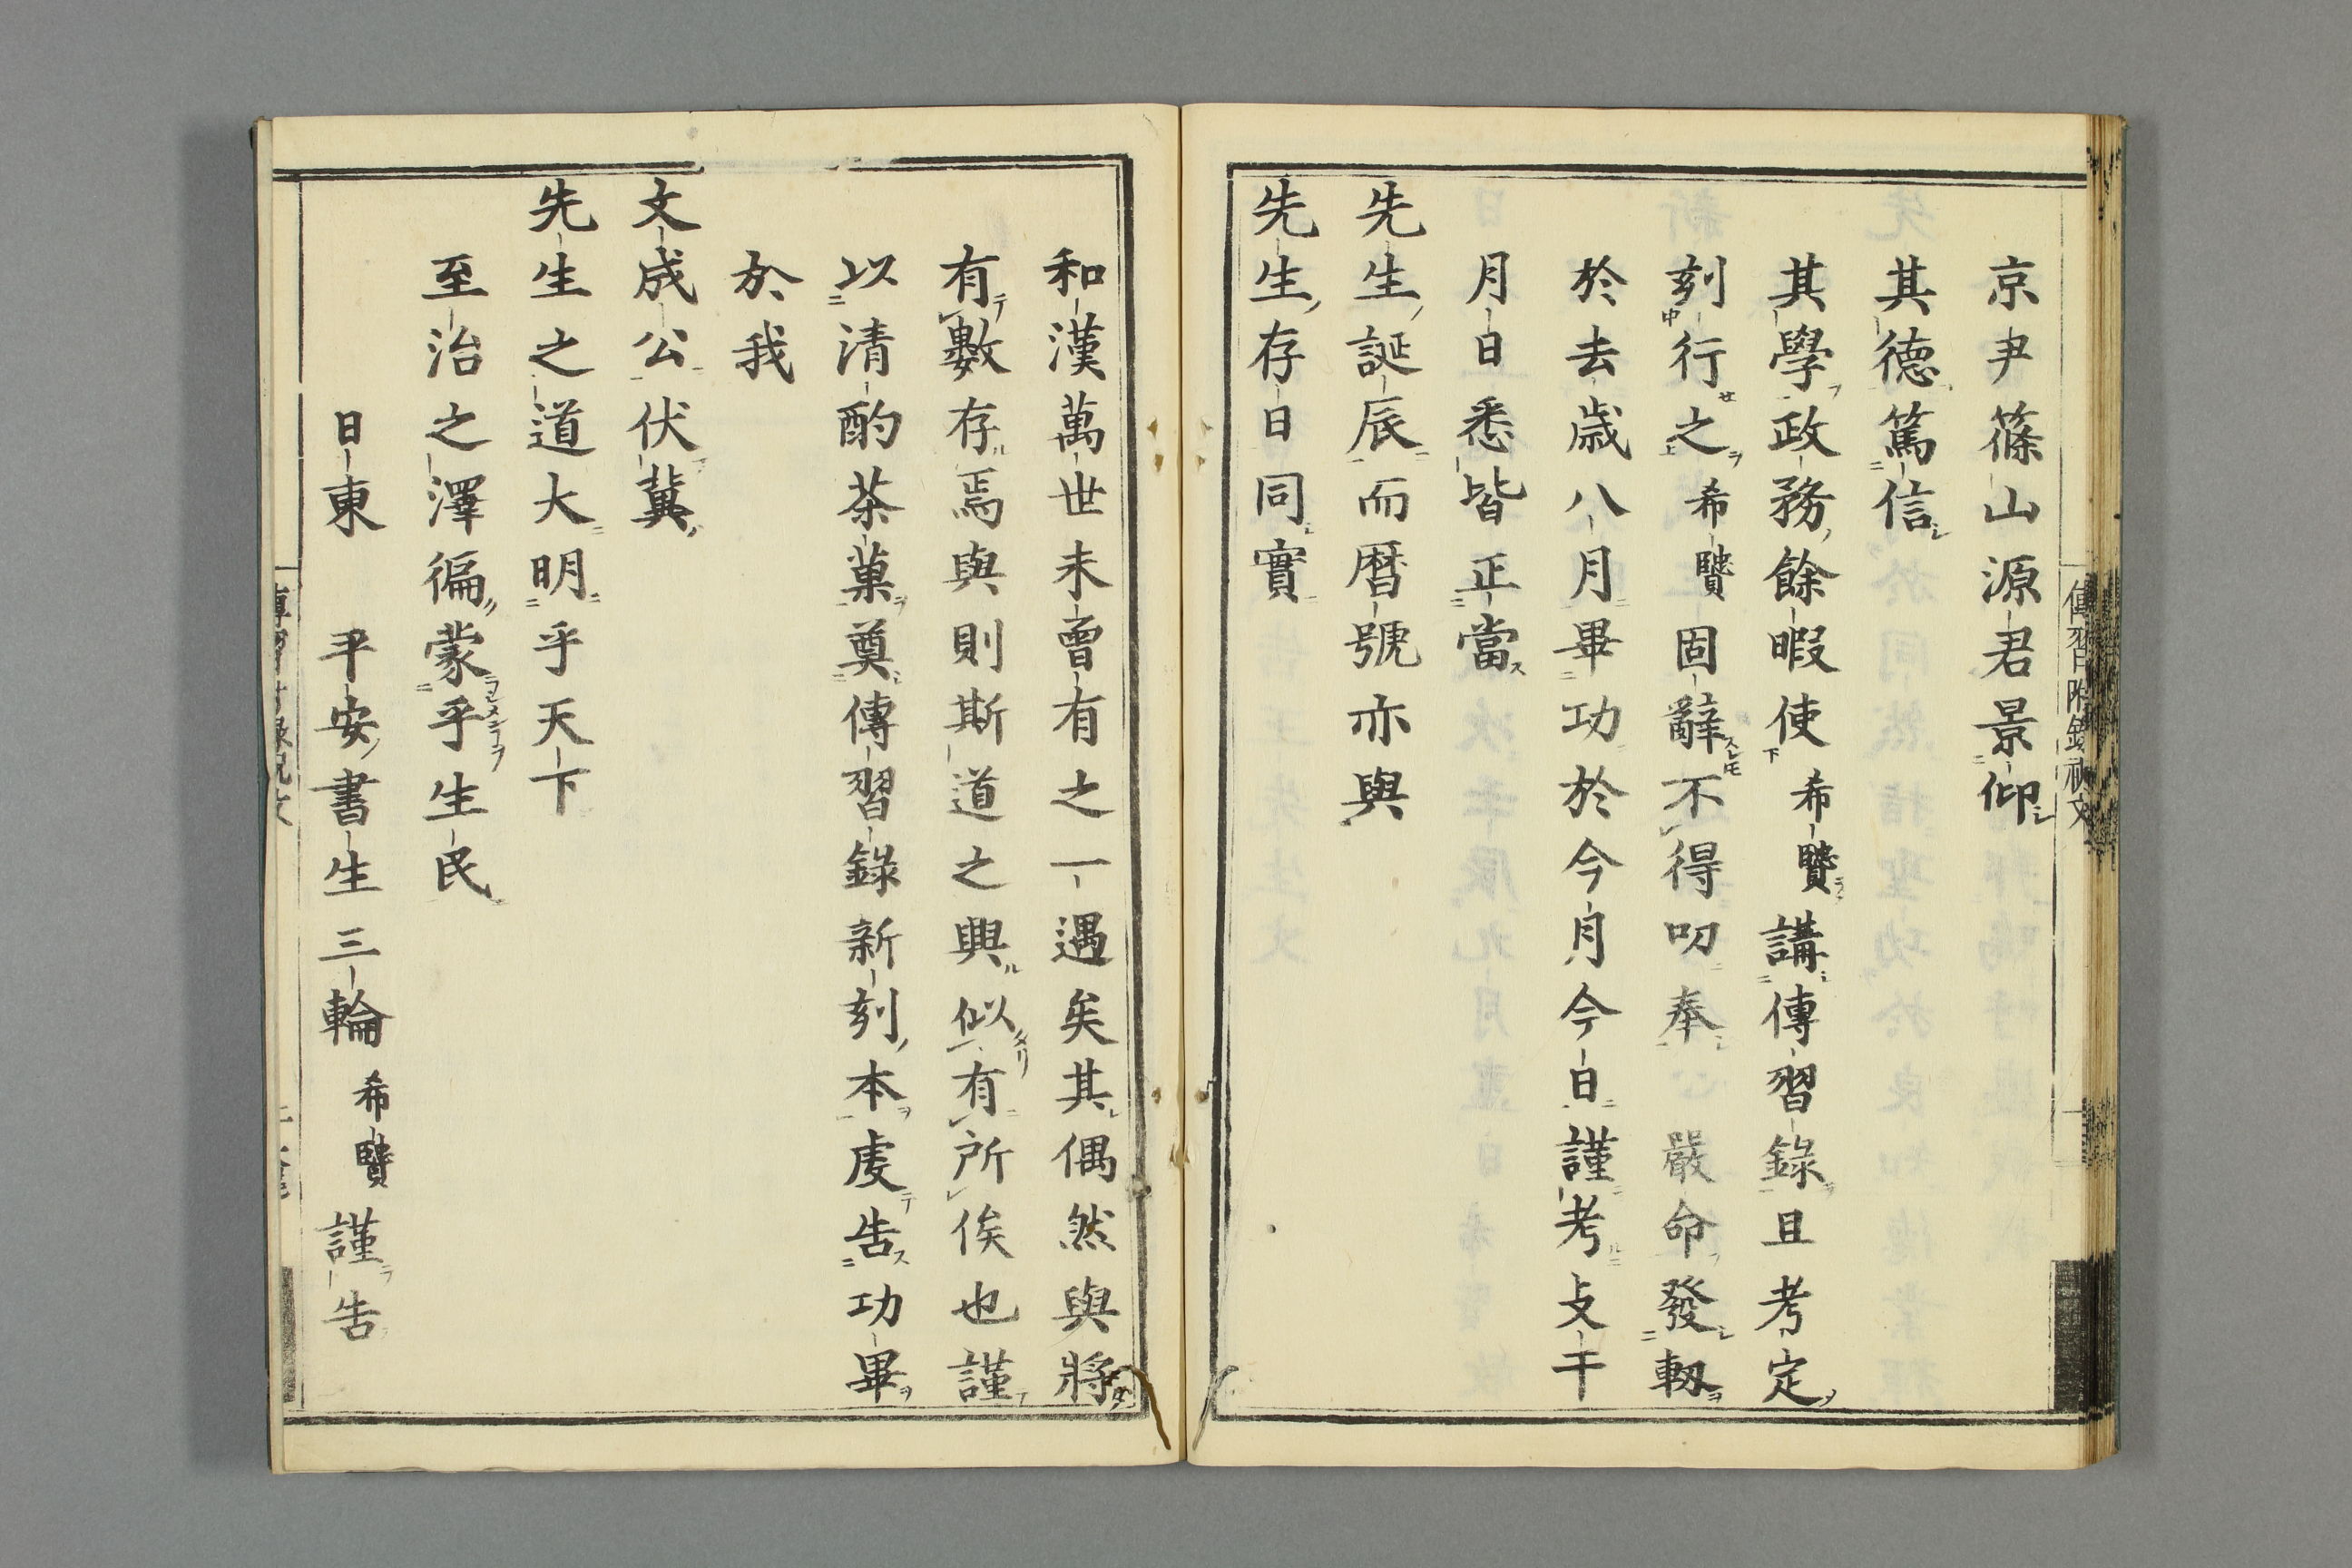 傳習附錄祝文
京尹篠山源君景仰
其德篤信
其學政務餘暇使希賢講傳習錄且考定
刻行之希賢固辭不得叨奉嚴命發軔
於去歲八月畢功於今月今日謹考支干
月日悉皆正當
先生誕辰而曆號亦與
先生存日同實
和漢萬世未曾有之一遇矣其偶然與將
有數存焉與則斯道之興似有所俟也謹
以清酌茶菓奠傳習錄新刻本虔告功畢
於我
文成公伏冀
先生之道大明乎天下
至治之澤徧蒙乎生民
日東 平安書生三輪希賢謹告